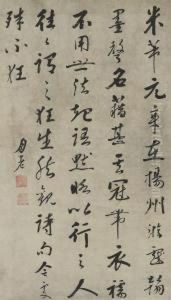 米芾元章在揚州游戲翰
墨聲名藉甚其冠帶衣襦
不用世法起語默略以行之人
往往謂之狂生然觀詩句合處
殊不狂